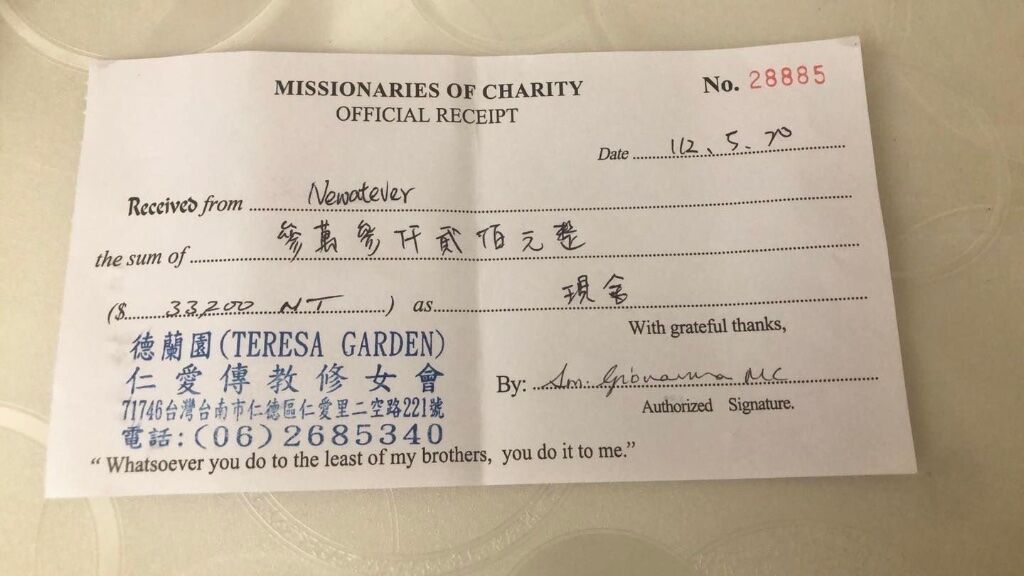 MISSIONARIES OF CHARITY
No. 28885
OFFICIAL RECEIPT
Date 112、5、20
Received from Newatever
the sum of 參萬參仟貳佰元整
($ 33,200 NT ) as 現金
With grateful thanks,
德蘭園(TERESA GARDEN)
仁愛傳教修女會
By: Sm. Giovanna MC
71746台灣台南市仁德區仁愛里二空路221號
Authorized Signature.
電話:(06)2685340
“ Whatsoever you do to the least of my brothers, you do it to me.”